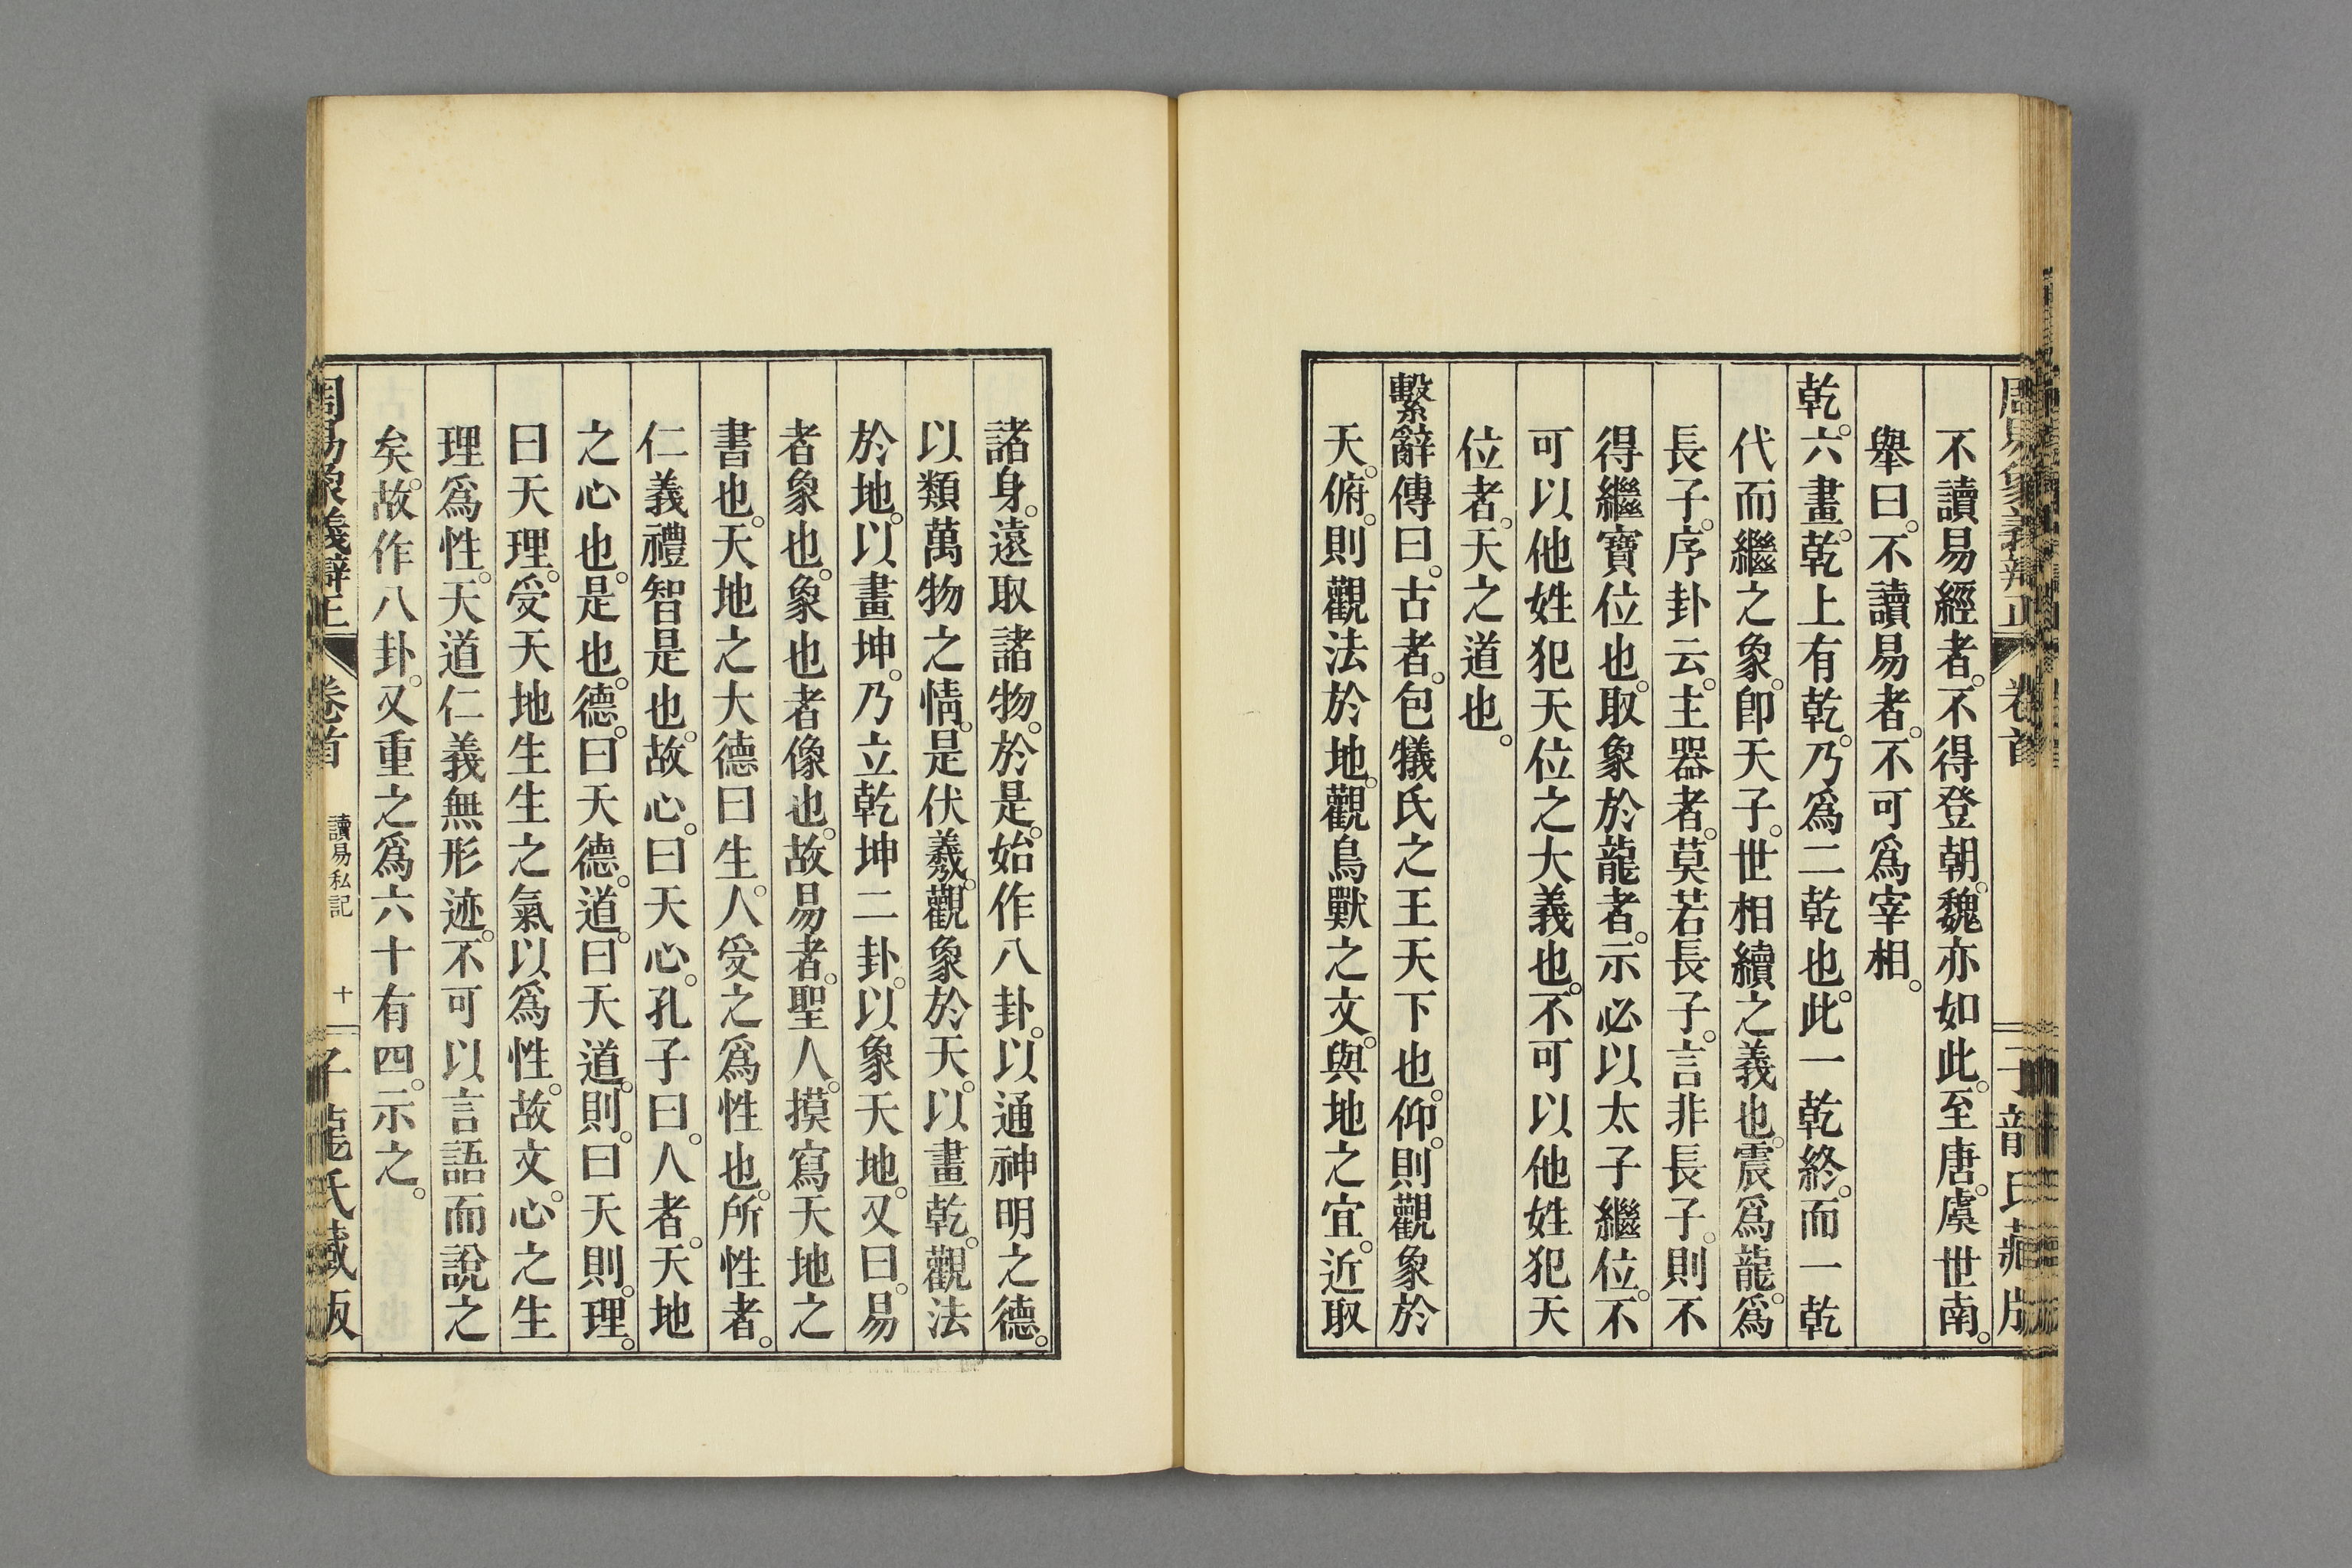 不讀易經者。不得登朝。魏亦如此。至唐。虞世南。
舉曰。不讀易者。不可爲宰相。
乾。六畫。乾上有乾。乃爲二乾也。此一乾終。而一乾
代而繼之象。卽天子。世相續之義也。震爲龍。爲
長子。序卦云。主器者。莫若長子。言非長子。則不
得繼寶位也。取象於龍者。示必以太子繼位。不
可以他姓犯天位之大義也。不可以他姓犯天
位者。天之道也。
繫辭傳曰。古者。包犧氏之王天下也。仰。則觀象於
天。俯。則觀法於地。觀鳥獸之文。與地之宜。近取
諸身。遠取諸物。於是。始作八卦。以通神明之德。
以類萬物之情。是伏羲。觀象於天。以畫乾。觀法
於地。以畫坤。乃立乾坤二卦。以象天地。又曰。易
者象也。象也者像也。故易者。聖人。摸寫天地之
書也。天地之大德曰生。人受之爲性也。所性者。
仁義禮智是也。故心。曰天心。孔子曰。人者。天地
之心也。是也。德。曰天德。道。曰天道。則。曰天則。理。
曰天理。受天地生生之氣以爲性。故文。心之生
理爲性。天道仁義無形迹。不可以言語而說之
矣。故作八卦。又重之爲六十有四。示之。
周易象義辯正 卷首 讀易私記 十 子龍氏藏版